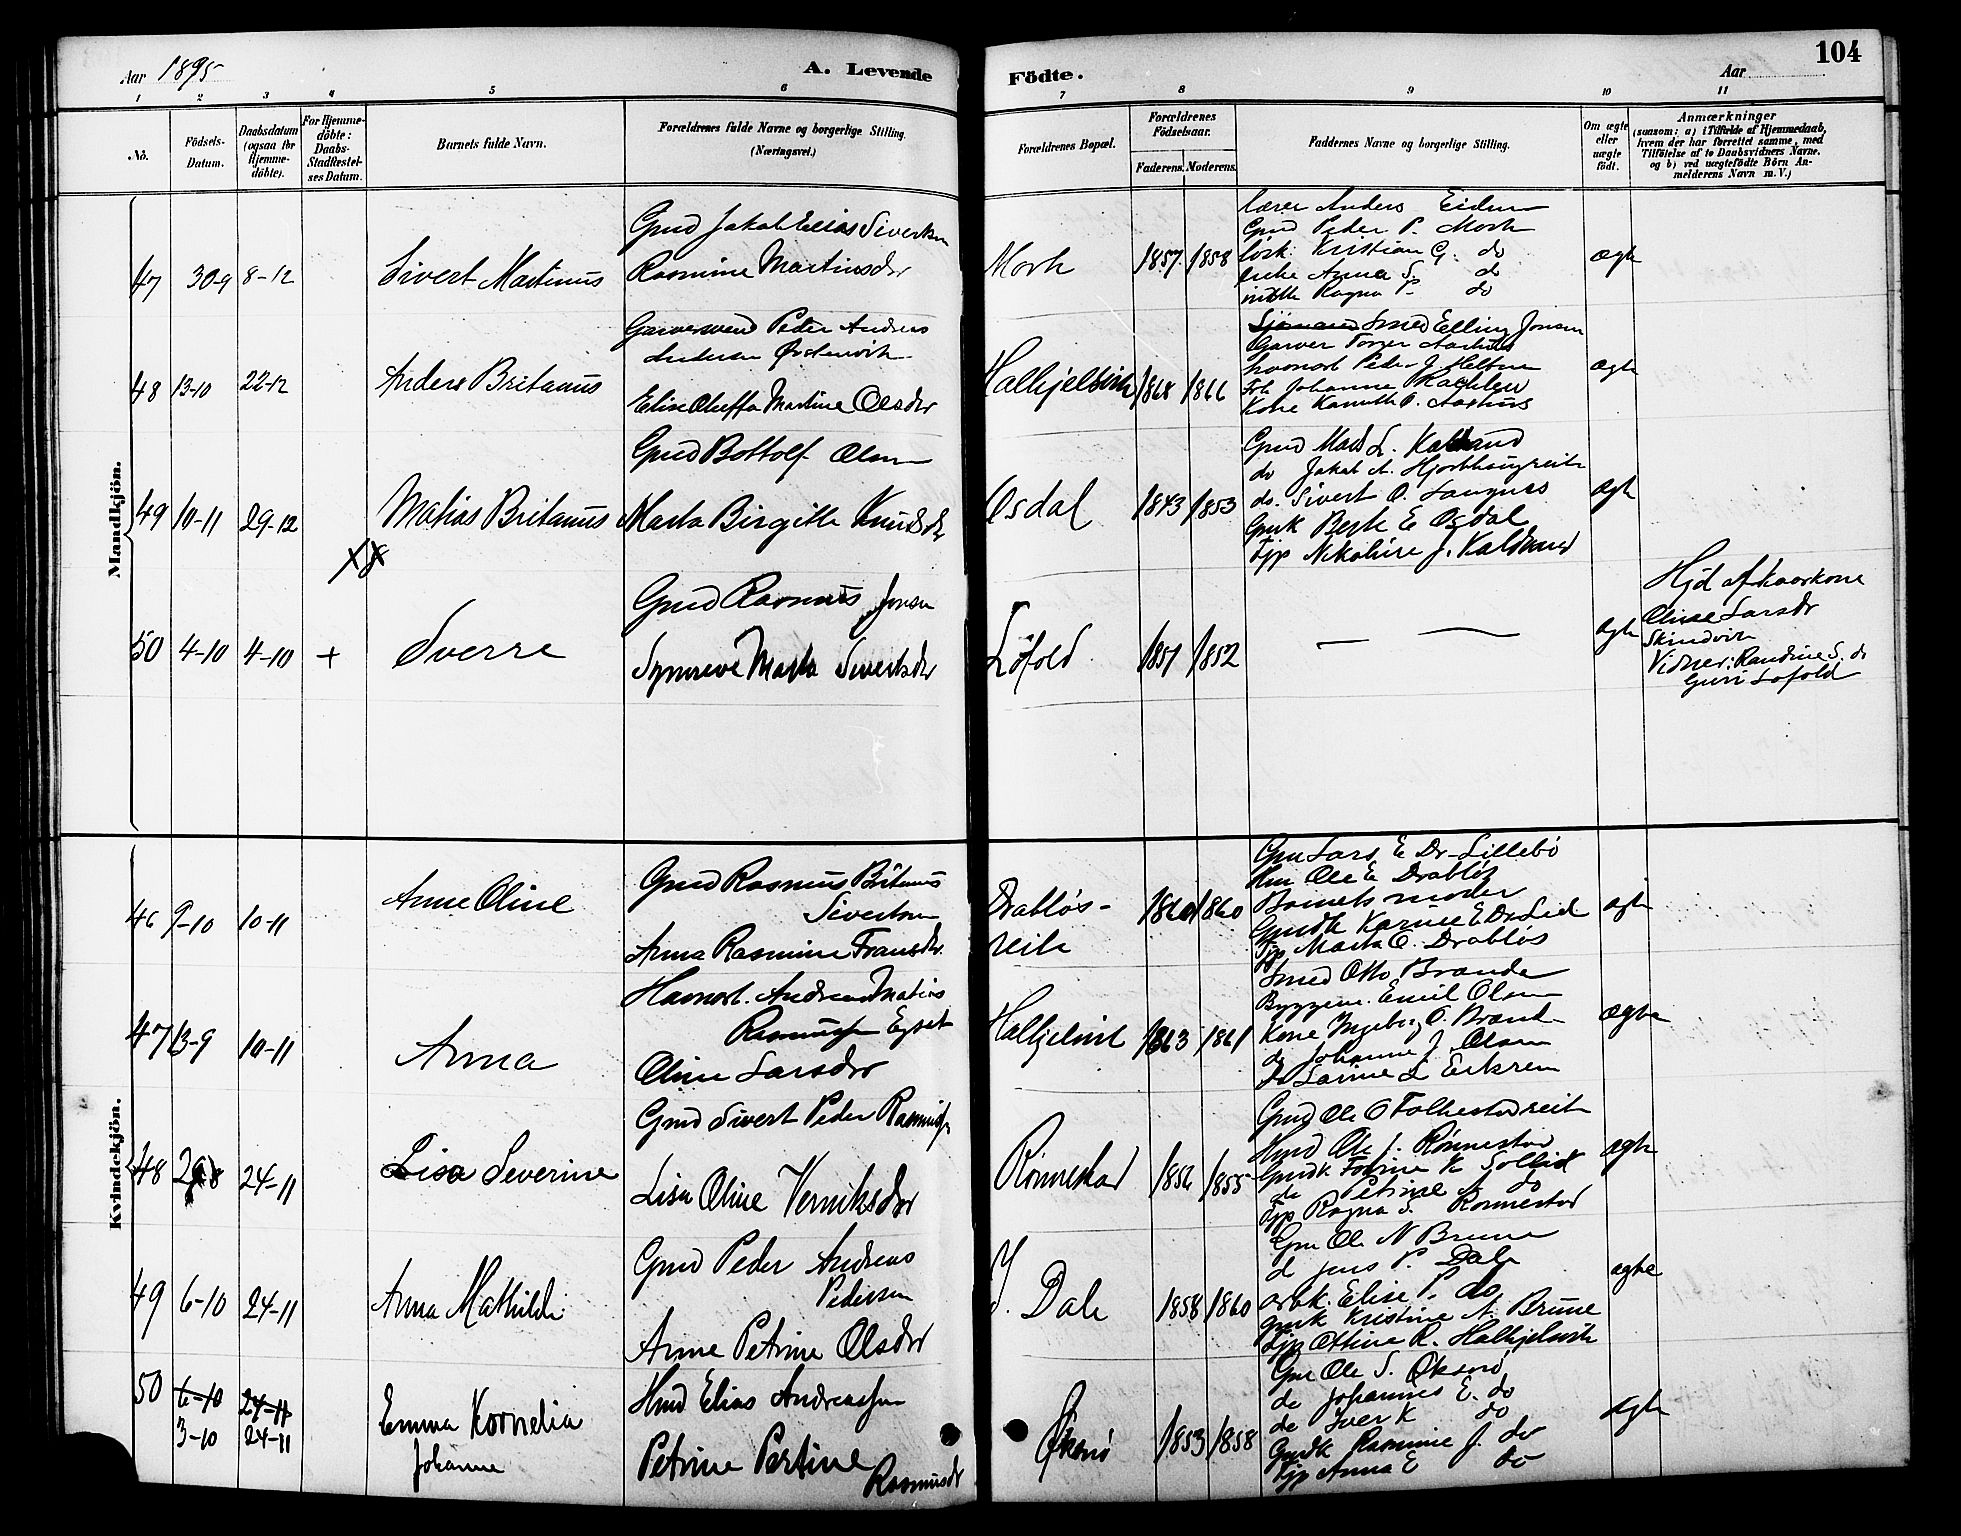 Aar 1895
A. Levende
Födte.
104
Aar
1
2
3
4
5
6
7
8
9
10
11
No.
Födsels-
Datum.
Daabsdatum
(ogsaa for
Hjemme-
döbte).
For Hjemme-
döbte:
Daabs-
Stadfestel-
ses Datum.
Barnets fulde Navn.
Forældrenes fulde Navne og borgerlige Stilling.
(Næringsvei.)
Forældrenes Bopæl.
Forældrenes
Födselsaar.
Faderens.
Moderens.
Faddernes Navne og borgerlige Stilling.
Om ægte
eller
uægte
födt.
Anmærkninger
(saasom: a) i Tilfælde af Hjemmedaab,
hvem der har forrettet samme, med
Tilföielse af to Daabsvidners Navne.
og b) ved uægtefödte Börn An-
melderens Navn m. V.)
Mandkjön.
47
30-9
8-12
Sivert Martinus
Gmd Jakob Elias Sivertsen
Rasmine Martinsdr
Mork
1857
1858
lærer Anders Eidem
Gmd Peder P. Mork
Kristian G. do
Anna S. do
Ragna P. do
ægte
48
13-10
22-12
Anders Britanus
Garversvend Peder Andreas
Andersen Ørstenvik
Elise Oluffa Martine Olsdr
Halkjelsvik
1868
1866
Smed Elling Jonsen
Garver
Peder J.
Johanne
Kone
ægte
49
10-11
29-12
Matias Britanus
Gmd Bottolf Olsen
Marta Birgitte Knudsdr
Osdal
1843
1853
Gmd Mads L. Kaldvand
do Jakob A. Hjorthaugreite
do. Sivert O. Langnes
Gmk Berte E Osdal
Tjp Nikoline J. Kaldvand
ægte
50
4-10
4-10
+
Sverre
Gmd Rasmus Jonsen
Synneve Marta Sivertsdr
Löfold
1851
1852
ægte
Hjd af kaarkone
Oline Larsdr
Skindvik
Vidner: Randine S. do
Guri Lofold
Kvindekjön.
46
9-10
10-11
Anne Oline
Gmd Rasmus Britanus
Sivertsen
Anna Rasmine Fransdr.
Drabløs-
reite
1860
1860
Gm Lars E Dr-Lillebö
Ole E Drabløs
Barnets moder
Gmdk Karine E Dr.Lid
Tjp Marta O. Drabløs
ægte
47
13-9
10-11
Anna
Havnarb. Andreas Matias
Rasmussen Eyset
Oline Larsdr
Halkjelsvik
1863
1861
Smed Otto Brande
Byggm. Emil Olsen
Kone Ingeborg O. Brande
do Johanne J Olsen
do Larine L Eiksrem
ægte
48
24-8
24-11
Lisa Severine
Gmd Sivert Peder Rasmussen
Lisa Oline Verniksdr
Rønnestad
1856
1855
Gmd Ole O Folkestadreite
Hmd Ole J. Rønnestad
Gmdk Torine K Sollid
do Petrine A do
Tjp Ragna S. Rønnestad
ægte
49
6-10
24-11
Anna Mathilde
Gmd Peder Andreas
Pedersen
Anne Petrine Olsdr
Y
d. Dale
1858
1860
Gm Ole N Brune
d Jens P. Dale
Elise P. do
Gmk Kristine A. Brune
Tjp Ottine R. Halkjelsvik
ægte
50
6-10
24-11
3-10
24-11
Emma Kornelia
Johanne
Hmd Elias Andreassen
Petrine Pertine
Rasmusdr
Øksnø
1853
1858
Gm Ole S. Øksnø
do Johannes E. do
do Iver K do
Gmdk Rasmine J. do
Tjp Anna E do
ægte